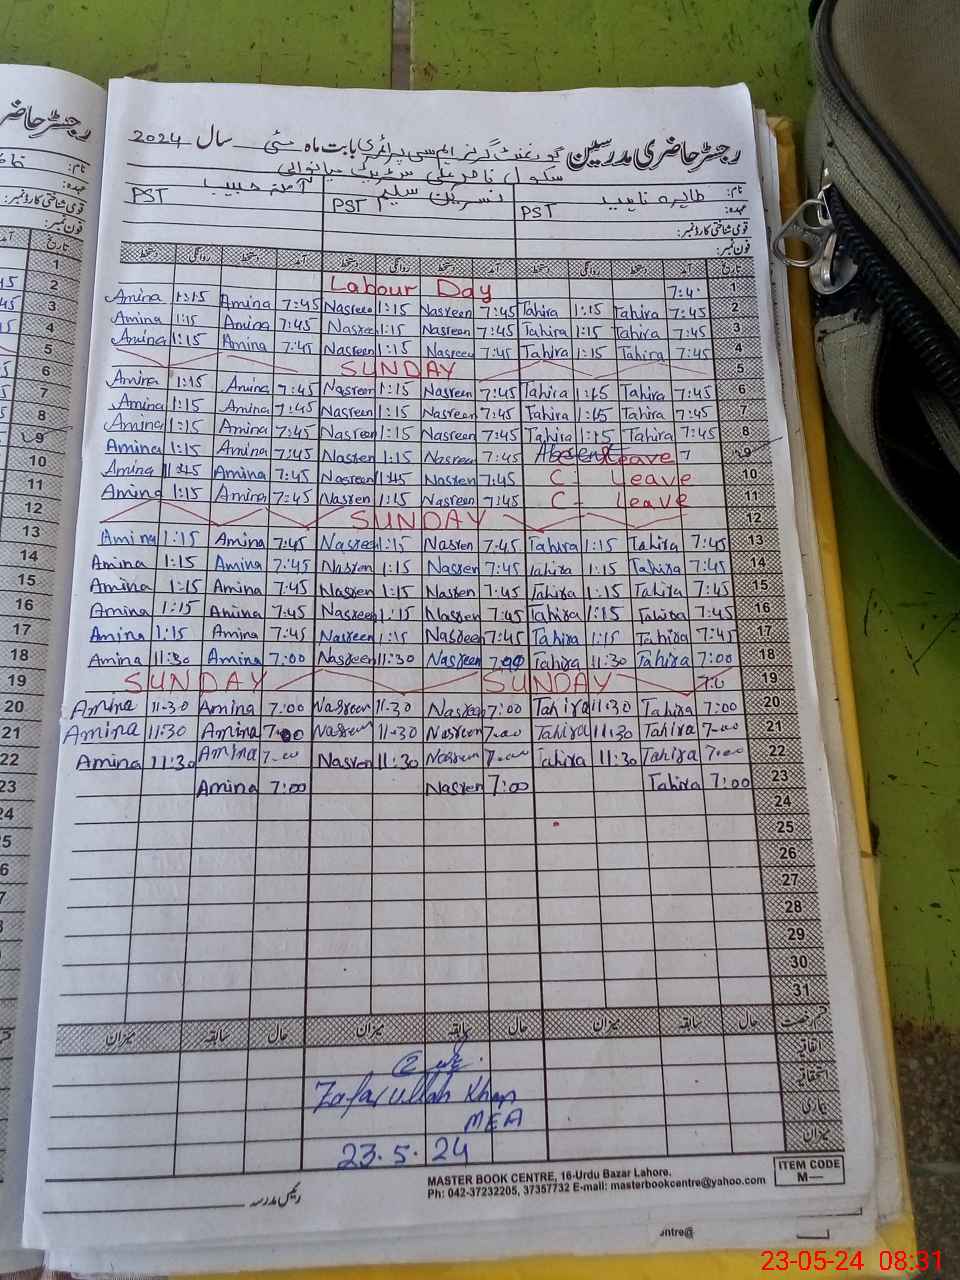 رجسٹر حاضری مدرسین گورنمنٹ گرلز ایم سی پرائمری بابت ماہ مئی سال 2024
سکول
نام: طاہرہ ناہید نسرین سلیم آمنہ حبیب
عہدہ: PST PST PST
قومی شناختی کارڈ نمبر:
فون نمبر:
تاریخ آمد دستخط روانگی دستخط آمد دستخط روانگی دستخط آمد دستخط روانگی دستخط
Labour Day 7:4 1
Amina 1:15 Amina 7:45 Nasreen 1:15 Nasreen 7:45 Tahira 1:15 Tahira 7:45 2
Amina 1:15 Amina 7:45 Nasreen 1:15 Nasreen 7:45 Tahira 1:15 Tahira 7:45 3
Amina 1:15 Amina 7:45 Nasreen 1:15 Nasreen 7:45 Tahira 1:15 Tahira 7:45 4
SUNDAY 5
Amina 1:15 Amina 7:45 Nasreen 1:15 Nasreen 7:45 Tahira 1:15 Tahira 7:45 6
Amina 1:15 Amina 7:45 Nasreen 1:15 Nasreen 7:45 Tahira 1:15 Tahira 7:45 7
Amina 1:15 Amina 7:45 Nasreen 1:15 Nasreen 7:45 Tahira 1:15 Tahira 7:45 8
Amina 1:15 Amina 7:45 Nasreen 1:15 Nasreen 7:45 Absent Leave 7 9
Amina 11:45 Amina 7:45 Nasreen 11:45 Nasreen 7:45 C - Leave 10
Amina 1:15 Amina 7:45 Nasren 1:15 Nasreen 7:45 C - Leave 11
SUNDAY 12
Amina 1:15 Amina 7:45 Nasreen 1:15 Nasren 7:45 Tahira 1:15 Tahira 7:45 13
Amina 1:15 Amina 7:45 Nasren 1:15 Nasren 7:45 Tahira 1:15 Tahira 7:45 14
Amina 1:15 Amina 7:45 Nasren 1:15 Nasren 7:45 Tahira 1:15 Tahira 7:45 15
Amina 1:15 Amina 7:45 Nasreen 1:15 Nasren 7:45 Tahira 1:15 Tahira 7:45 16
Amina 1:15 Amina 7:45 Nasreen 1:15 Nasreen 7:45 Tahira 1:15 Tahira 7:45 17
Amina 11:30 Amina 7:00 Nasreen 11:30 Nasren 7:00 Tahira 11:30 Tahira 7:00 18
SUNDAY SUNDAY 7:0 19
Amina 11-30 Amina 7:00 Nasreen 11-30 Nasreen 7:00 Tahira 11:30 Tahira 7:00 20
Amina 11:30 Amina 7:00 Nasreen 11-30 Nasreen 7-00 Tahira 11:30 Tahira 7-00 21
Amina 11:30 Amina 7-00 Nasren 11:30 Nasreen 7-00 Tahira 11:30 Tahira 7:00 22
Amina 7:00 Nasren 7:00 Tahira 7:00 23
24
25
26
27
28
29
30
31
قسم رخصت حال سابقہ میزان حال سابقہ میزان حال سابقہ میزان
اتفاقیہ
استحقاقیہ
بیماری
میزان
Zafarullah Khan
MEA
23.5.24
رئیس مدرسہ
MASTER BOOK CENTRE, 16-Urdu Bazar Lahore.
Ph: 042-37232205, 37357732 E-mail: masterbookcentre@yahoo.com
ITEM CODE
M—
entre@
23-05-24 08:31